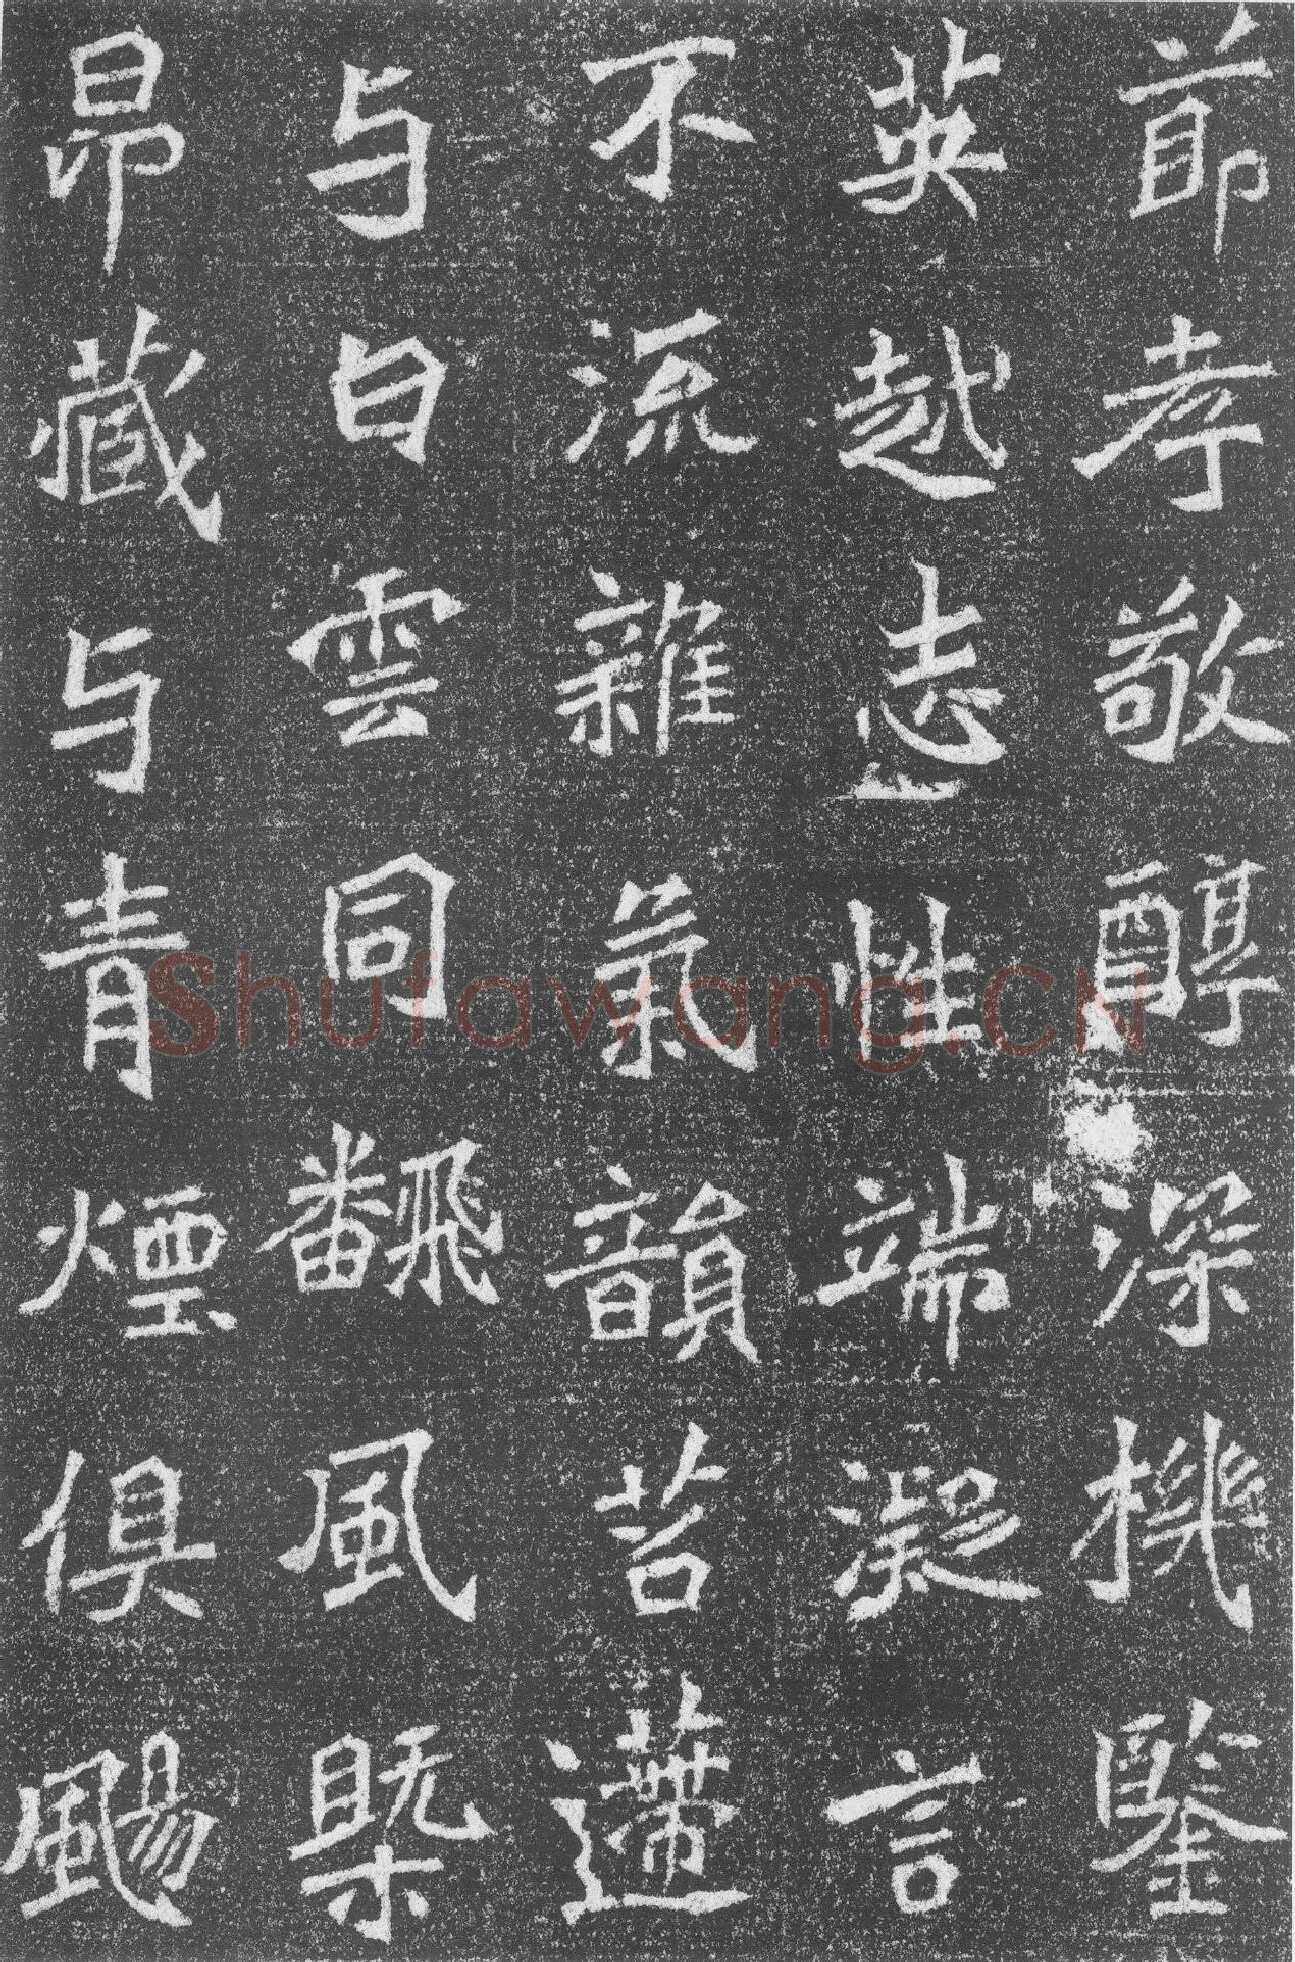 節孝敬醇深機鑒
英越志性端凝言
不流雜氣韻苕遰
与白雲同飜風槩
昂藏与青煙俱颺
Shufawang.CN